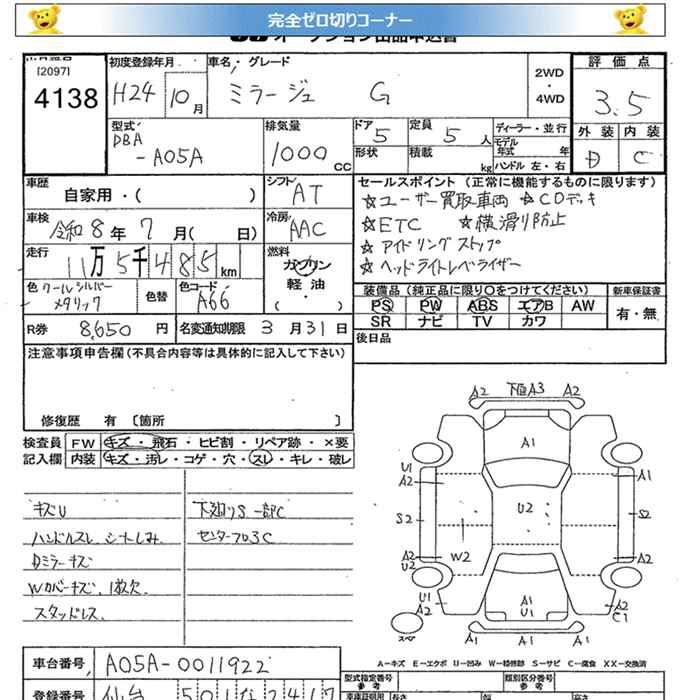 完全ゼロ切りコーナー
オークション出品申込書
[2097]
4138
初度登録年月
H24 10月
車名・グレード
ミラージュ G
2WD
・
4WD
評価点
3.5
外装 内装
D C
型式
DBA
-A05A
排気量
1000 CC
ドア 5
形状
定員 5 人
積載 kg
ディーラー・並行
モデル年式 年
ハンドル 左・右
車歴
自家用・( )
シフト
AT
車検
令和8年7月( 日)
冷房
AAC
走行
11万5千485km
燃料
ガソリン
軽油
( )
色 クールシルバーメタリック
色替
色コード
A66
R券 8,650 円
名変通知期限 3月31日
セールスポイント (正常に機能するものに限ります)
☆ユーザー買取車両 ☆CDデッキ
☆ETC ☆横滑り防止
☆アイドリングストップ
☆ヘッドライトレベライザー
装備品(純正品に限り○をつけてください)
新車保証書
PS PW ABS エアB AW
SR ナビ TV カワ
有・無
後日品
注意事項申告欄(不具合内容等は具体的に記入して下さい)
修復歴 有 〔箇所 〕
検査員
記入欄
FW キズ・飛石・ヒビ割・リペア跡・×要
内装 キズ・汚レ・コゲ・穴・スレ・キレ・破レ
キズU
ハンドルスレ、シートしみ
Dミラーキズ
Wカバーキズ、1枚欠
スタッドレス
下廻りS 一部C
センターフロ3C
A2 下廻A3 A2
A1
U1
A2
A1
S2
U2
S2
W2
A2
U2
A2
U1
A2
A1
U1
A2
C1
スペア
A1 A1 A1
A－キズ E－エクボ U－凹み W－補修跡 S－サビ C－腐食 XX－交換済
車台番号 A05A-0011922
型式指定番号
類別区分番号
登録番号 仙台 501な2417
長さ 幅 高さ